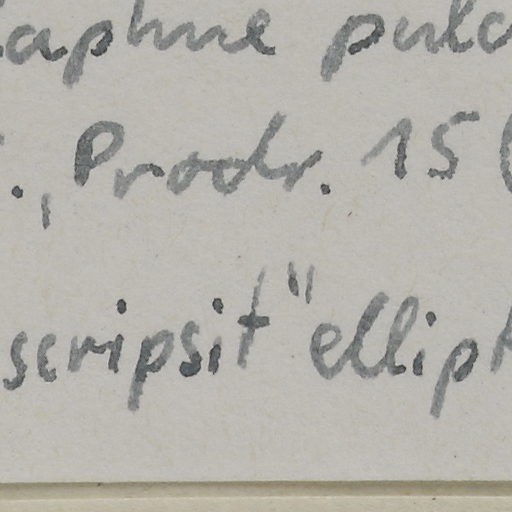 aphne pulc
., Prodr. 15 (
scripsit "ellipt